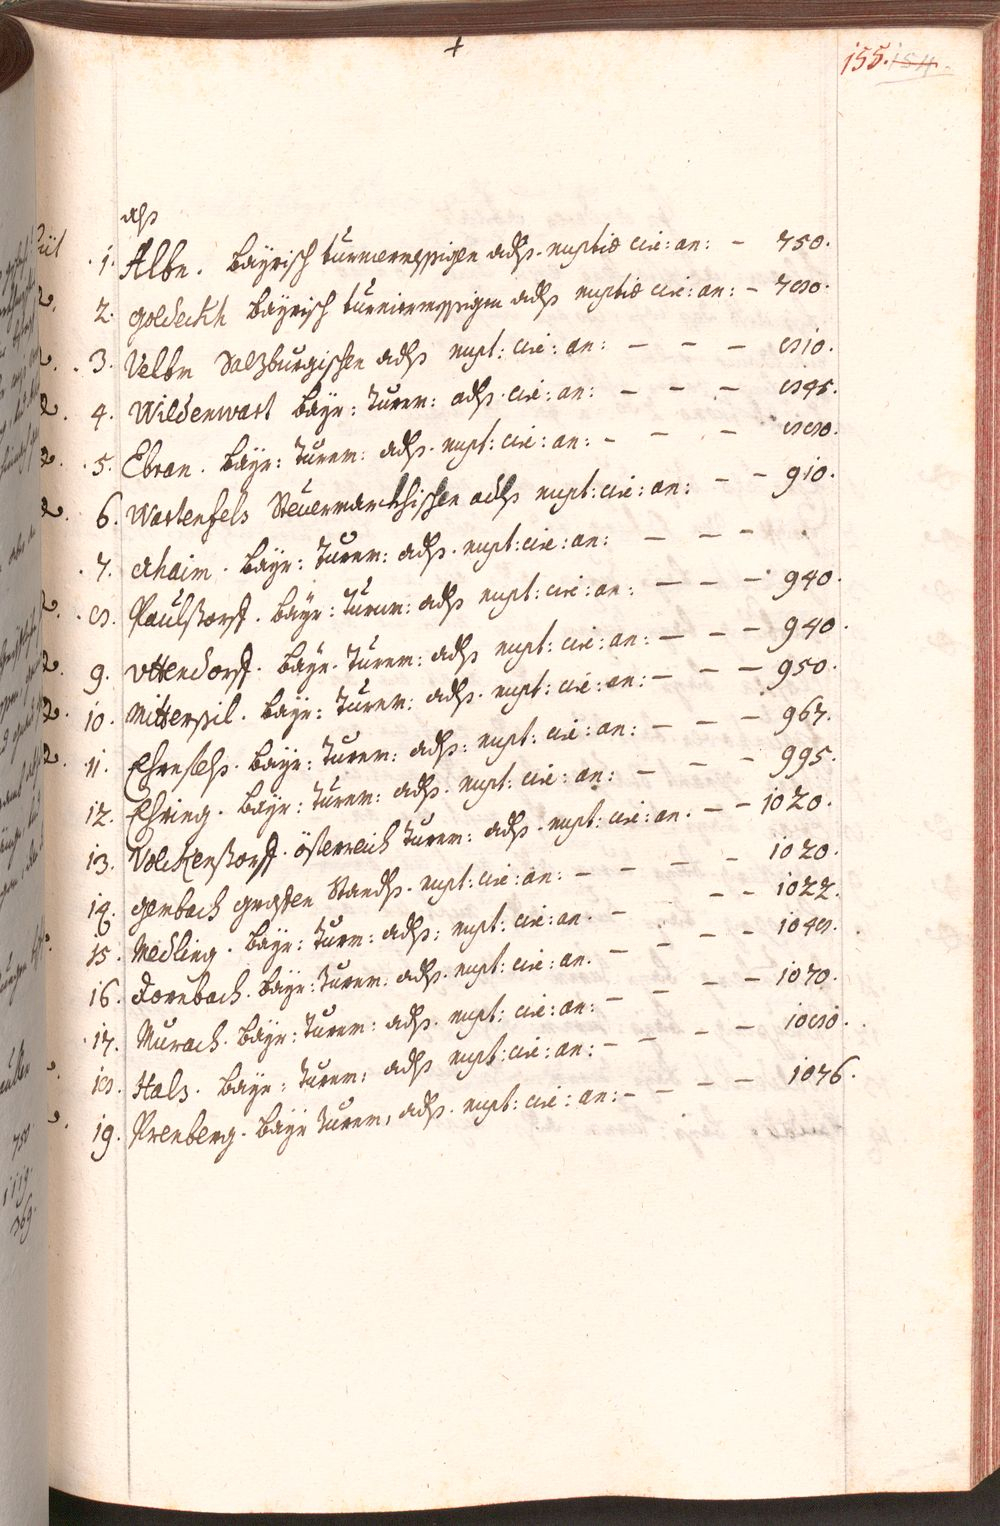 155. 154.
als
1. Albn. Bayrisch turniermessigen adls. nuptiæ cir: an: – 750.
2. Goldeckh Bayrisch turniermessigen adls nuptiæ cir: an: – 780.
3. Velbn Salzburgischen adls nupt: cir: an: – – – 810.
4. Wildenwart Bayr: Turnr: adls. cir: an: – – – 845.
5. Ebran. Bayr: Turnr: adls. nupt: cir: an: – – – 880.
6. Wartenfels Steuermarckhischen adls nupt: cir: an: – – 910.
7. Ahaim. Bayr: Turnr: adls. nupt: cir: an: – – – .
8. Paulstorff. Bayr: Turnr: adls nupt: cir: an: – – – 940.
9. Vttendorff. Bayr. Turnr: adls nupt: cir: an: – – – 940.
10. Mittersil. Bayr: Turnr: adls. nupt: cir: an: – – – 950.
11. Ehrnfels. Bayr: Turnr: adls: nupt: cir: an: – – – 967.
12. Ehring. Bayr: Turnr: adls. nupt: cir: an: – – – 995.
13. Volckenstorff. österreich Turnr: adls. nupt: cir: an. – – 1020.
14. Gembach grossen Stands. nupt: cir: an: – – – – 1020.
15. Medling. Bayr: Turn: adls: nupt: cir: an. – – – 1022.
16. Dornbach. Bayr: Turnr: adls. nupt: cir: an. – – – – 1048.
17. Murach. Bayr: Turnr: adls. nupt: cir: an: – – – – 1070.
18. Hals. Bayr: Turnr: adls nupt: cir: an: – – – – 1080.
19. Prenberg. Bayr Turnr, adls. nupt: cir: an: – – – – 1076.